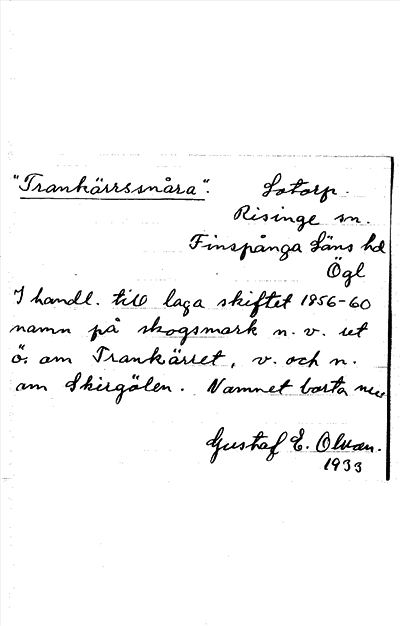 "Trankärrssnåra".
Lotorp.
Risinge sn.
Finspånga läns hd
Ögl
I handl. till laga skiftet 1856-60
namn på skogsmark n. v. ut
ö. om Trankärret, v. och n.
om Skirgölen. Namnet borta nu
Gustaf E. Olsson.
1933